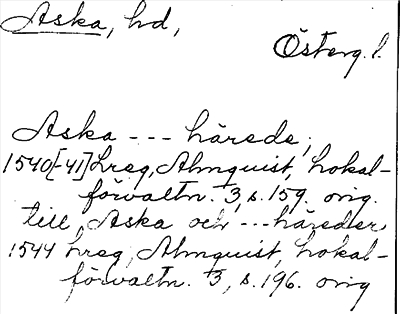 Aska, hd,
Österg. l.
Aska --- härede;
1540[-41] Lreg, Almquist, Lokal-
förvaltn. 3, s. 159. orig.
till Aska och --- häreder,
1544 Lreg, Almquist, Lokal-
förvaltn. 3, s. 196. orig